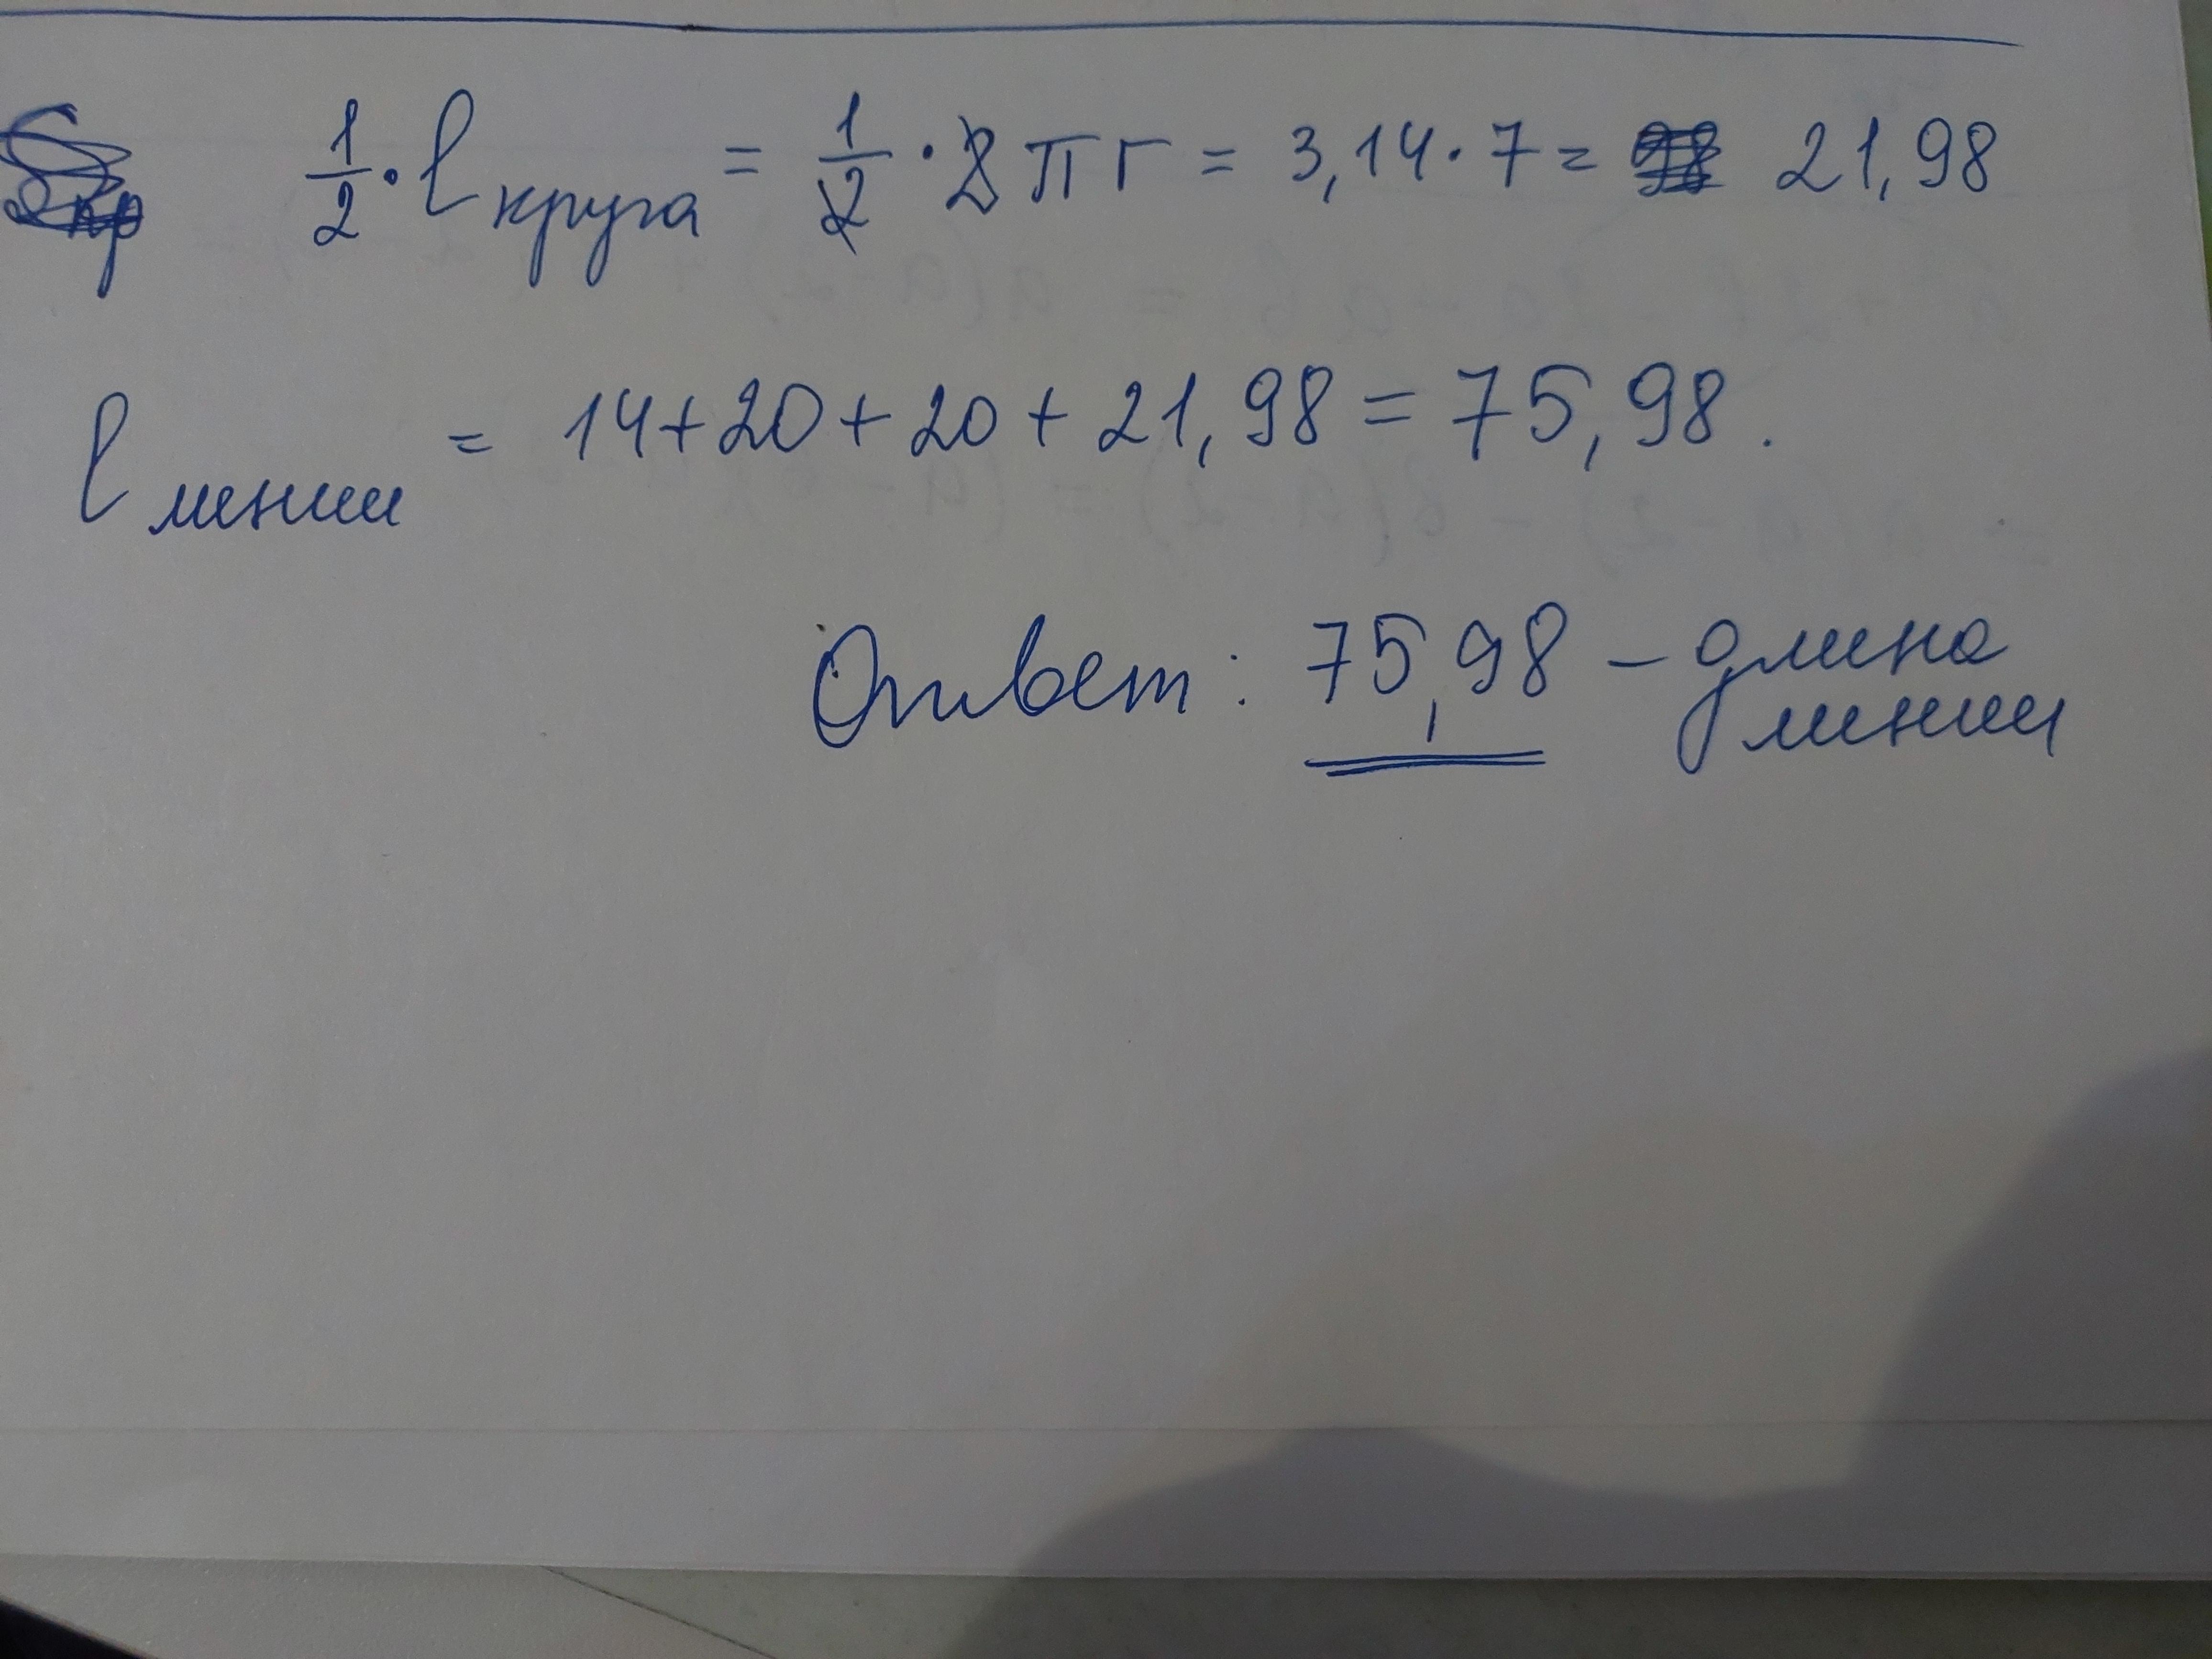 1/2 · l круга = 1/2 · 2 π r = 3,14 · 7 = 21,98
l линии = 14 + 20 + 20 + 21,98 = 75,98.
Ответ: 75,98 – длина
линии